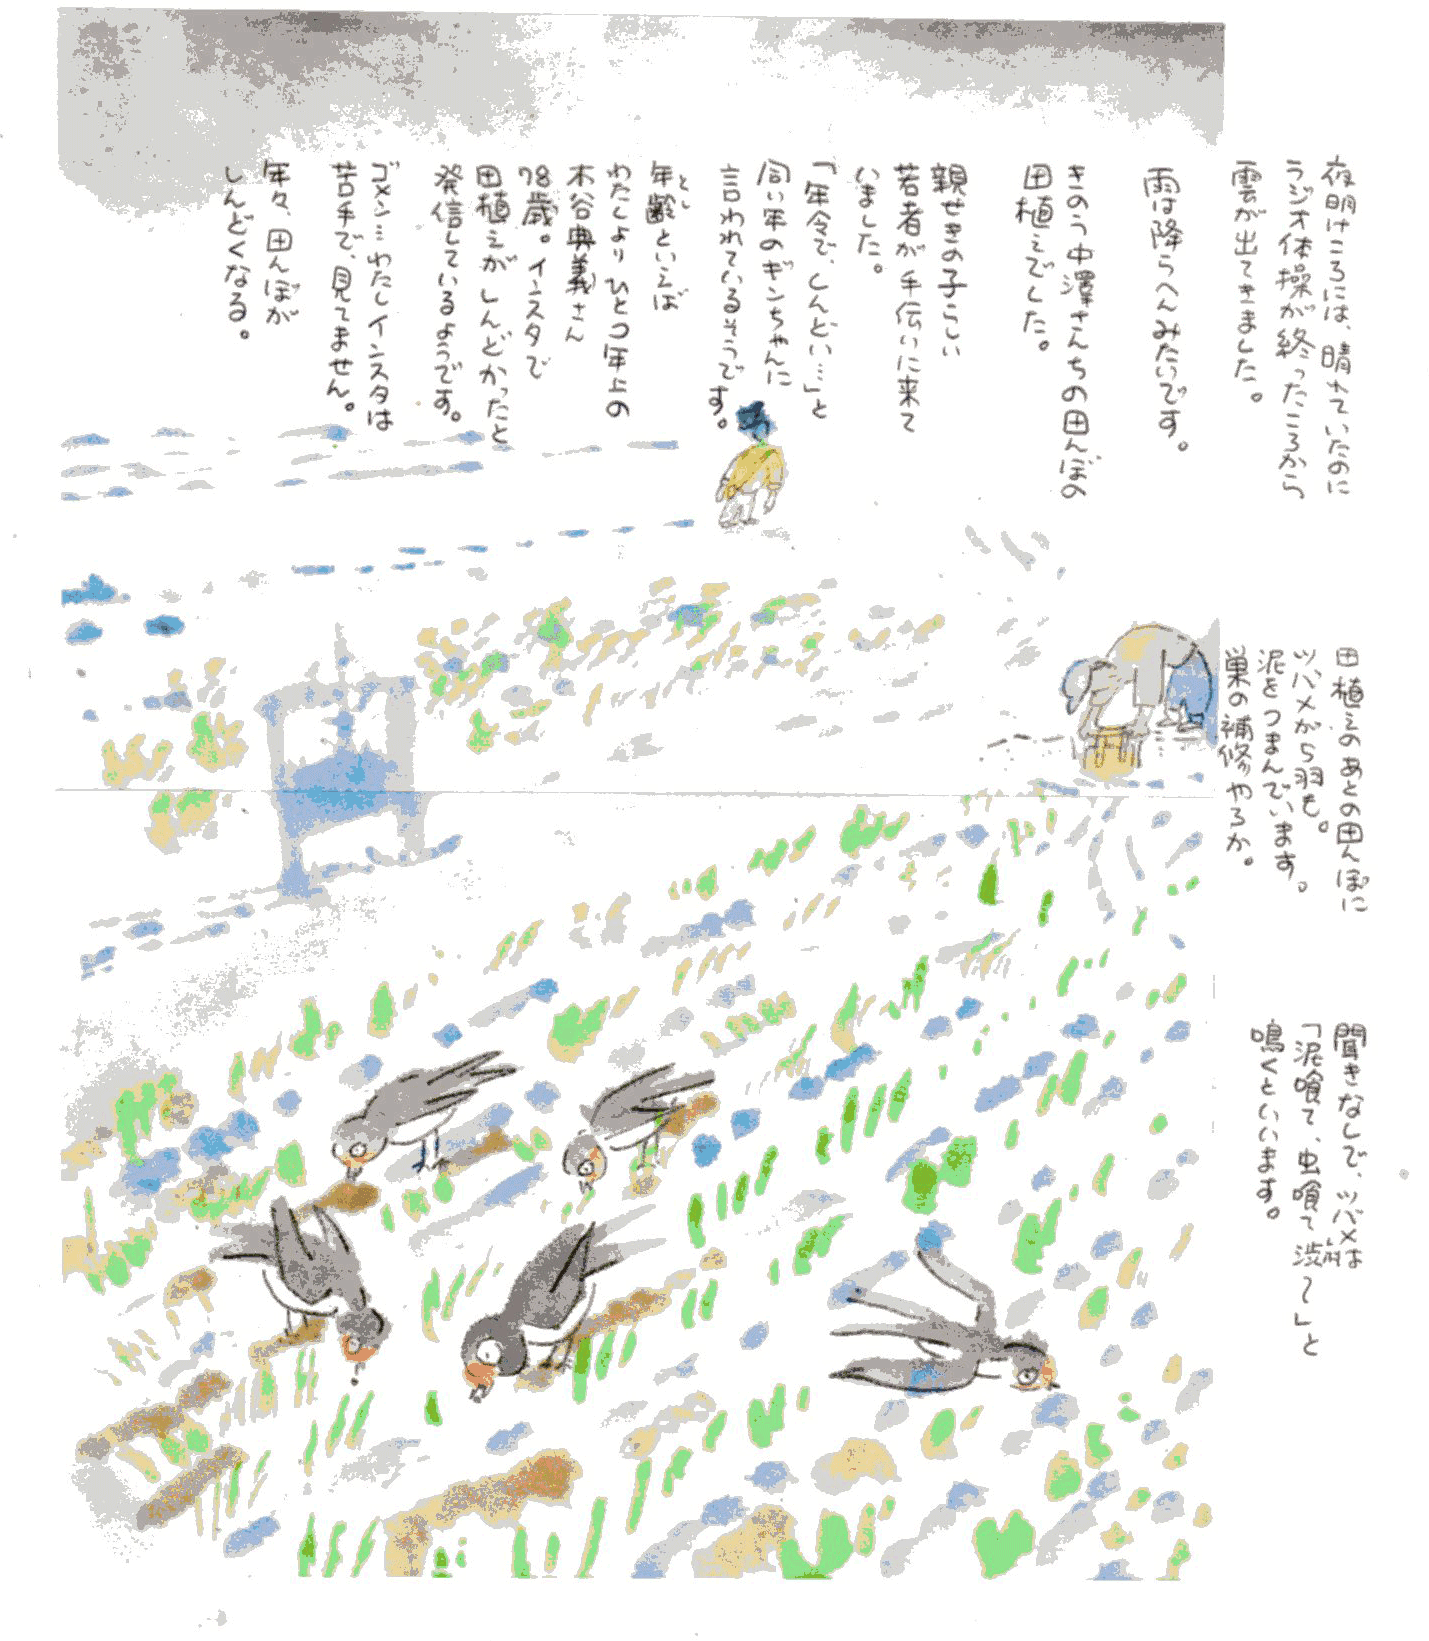 夜明けころには、晴れていたのに
ラジオ体操が終ったころから
雲が出てきました。
雨は降らへんみたいです。
きのう中澤さんちの田んぼの
田植えでした。
親せきの子らしい
若者が手伝いに来て
いました。
「年令で、しんどい…」と
同い年のギンちゃんに
言われているそうです。
年齢といえば
とし
わたしよりひとつ年上の
木谷典義さん
78歳。インスタで
田植えがしんどかったと
発信しているようです。
ゴメン…わたしインスタは
苦手で、見てません。
年々、田んぼが
しんどくなる。
田植えのあとの田んぼに
ツバメが5羽も。
泥をつまんでいます。
巣の補修やろか。
聞きなしで、ツバメは
「泥喰て、虫喰て渋〜」と
鳴くといいます。